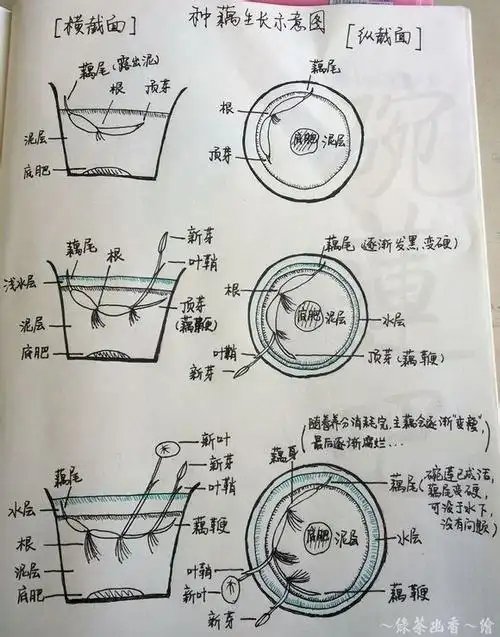 种藕生长示意图
[横截面]
[纵截面]
藕尾(露出泥)
根
顶芽
泥层
底肥
藕尾
根
顶芽
底肥
泥层
新芽
叶鞘
藕尾
根
浅水层
顶芽
(藕鞭)
泥层
底肥
藕尾(逐渐发黑、变硬)
根
底肥
泥层
水层
叶鞘
新芽
顶芽(藕鞭)
新叶
新芽
叶鞘
藕尾
水层
藕鞭
根
泥层
底肥
(随着养分消耗完,主藕会逐渐“变瘦”,
最后逐渐腐烂...)
藕身
藕尾
(碗莲已成活,
藕尾变硬,
可没于水下,
没有问题)
底肥
泥层
水层
叶鞘
新叶
新芽
藕鞭
~绿茶幽香~绘